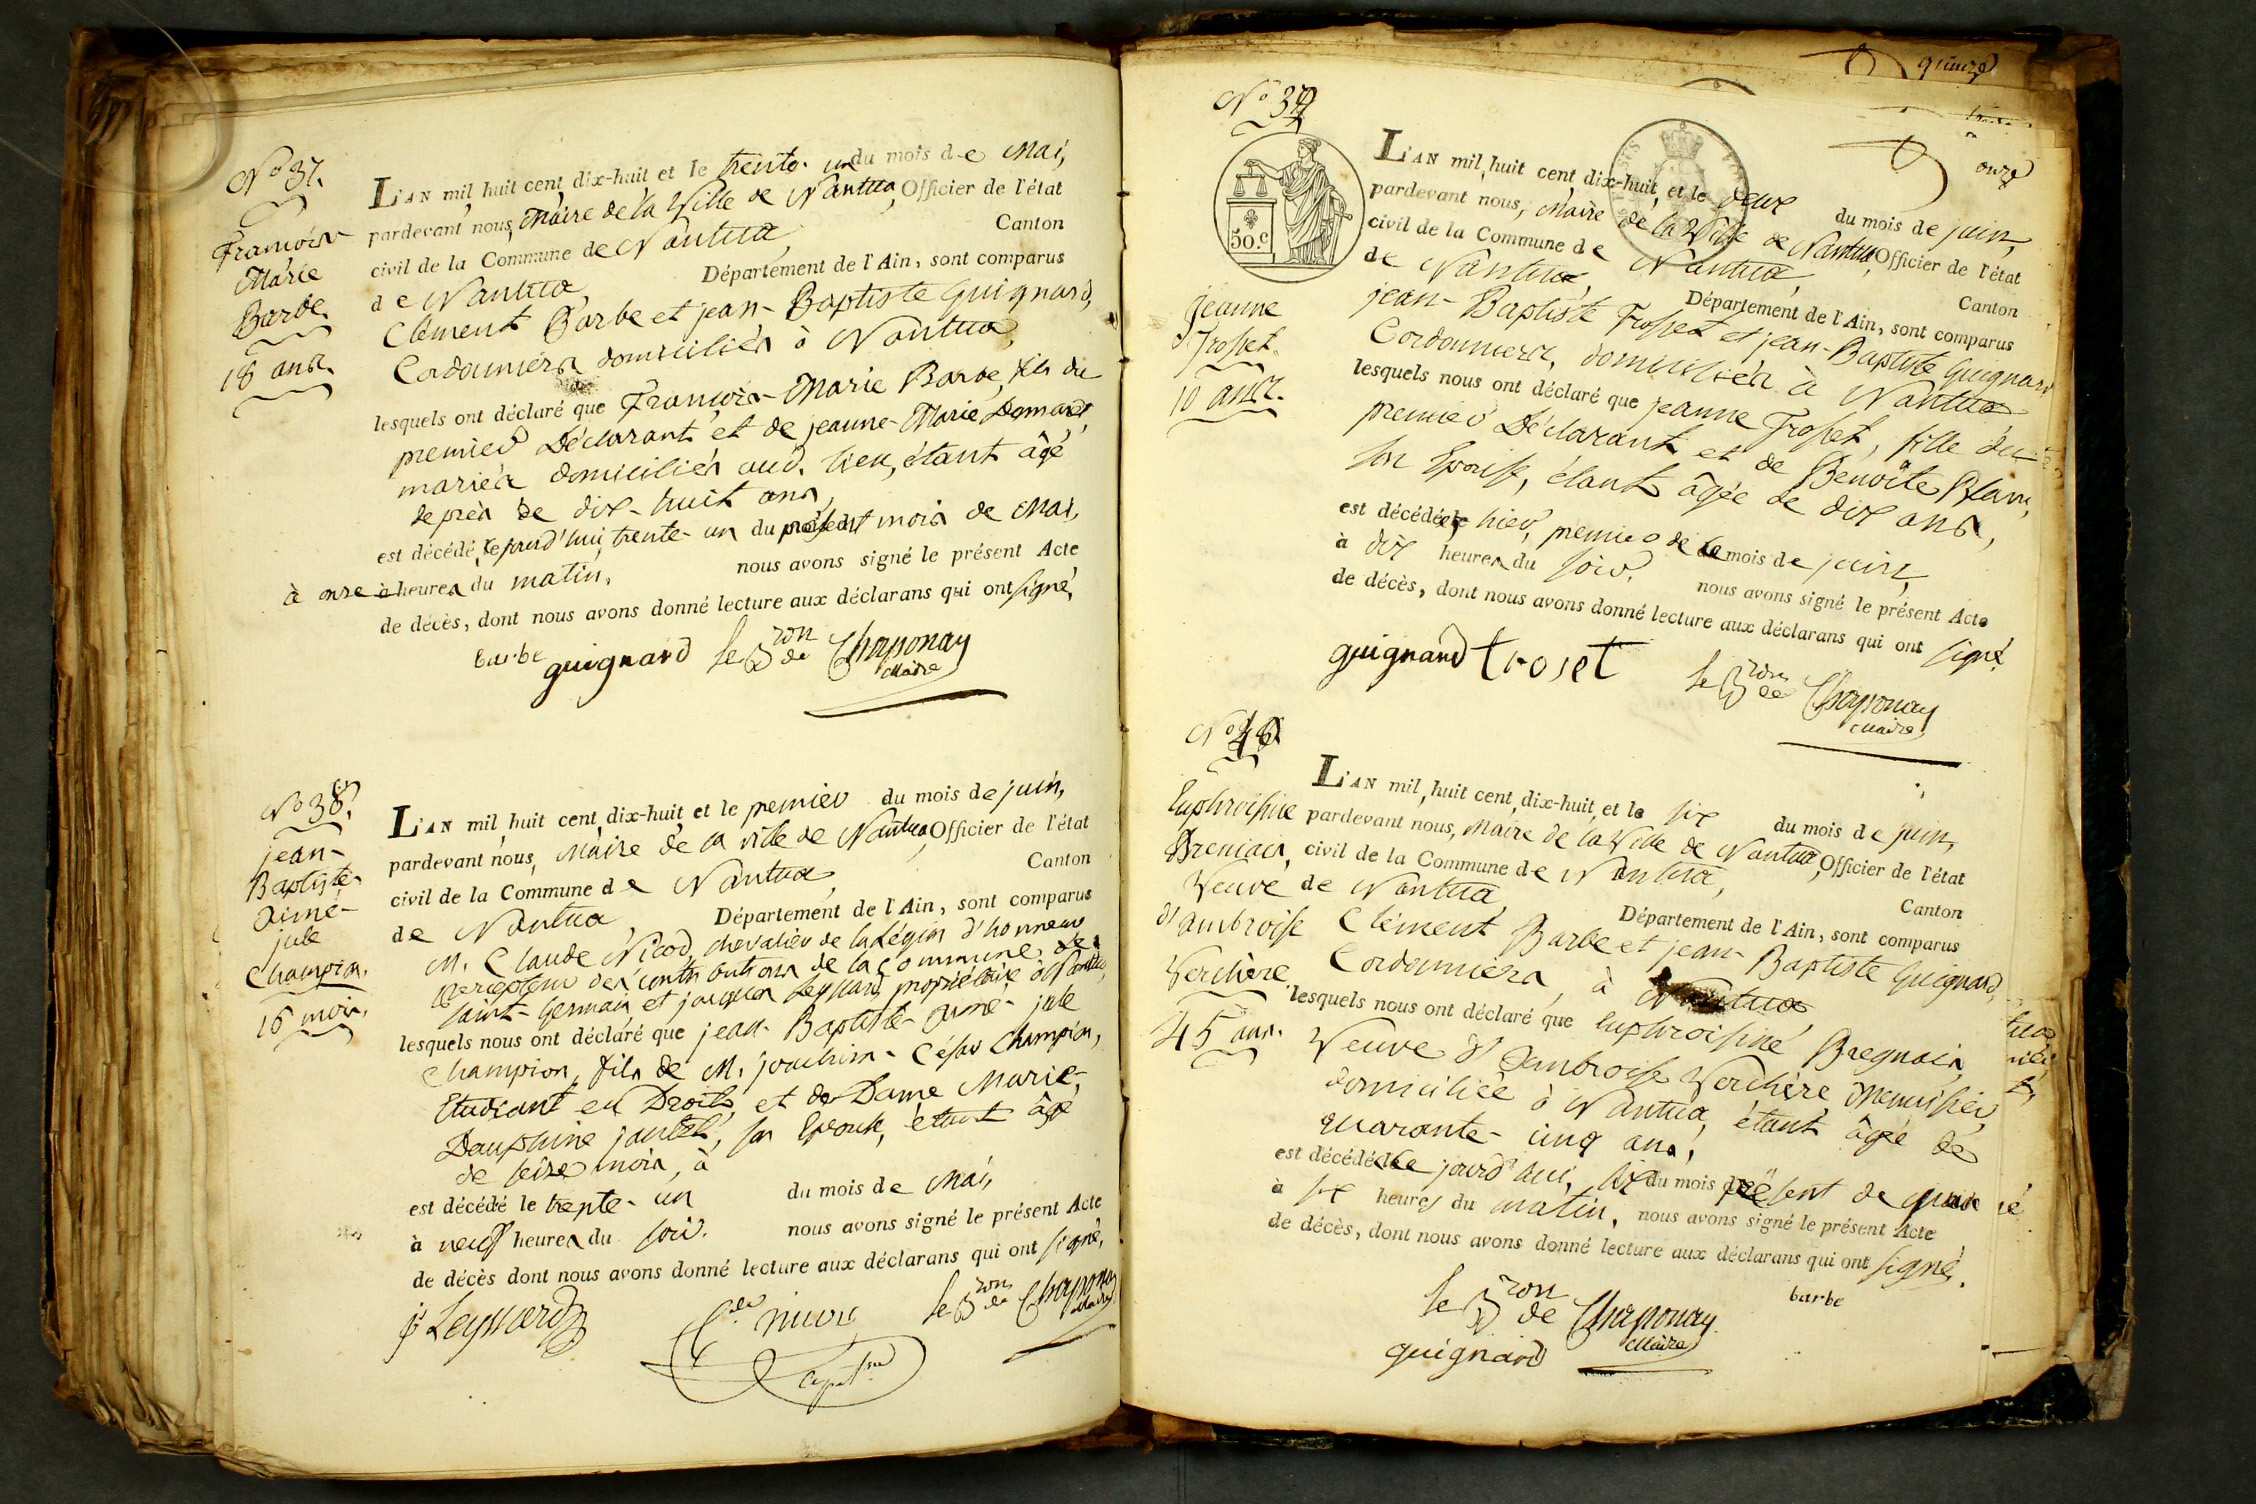 No 37.
François
Marie
Barbe.
18 ans.
L'AN mil huit cent dix-huit et le trente-un du mois de Mai,
pardevant nous, Maire de la Ville de Nantua, Officier de l'état
civil de la Commune de Nantua, Canton
de Nantua, Département de l'Ain, sont comparus
Clément Barbe et jean-Baptiste Guignard,
Cordonniers domiciliés à Nantua,
lesquels ont déclaré que François-Marie Barbe, fils du
premier Déclarant et de jeanne-Marie
mariés domiciliés aud. lieu, étant âgé
de près de dix-huit ans,
est décédé, ce jourd'hui, trente-un du présent mois de Mai,
à onze à heures du matin, nous avons signé le présent Acte
de décès, dont nous avons donné lecture aux déclarans qui ont signé,
barbe guignard le Bron de Chaponay
Maire
No 38.
jean-
Baptiste-
aimé-
jule
Champion.
16 mois.
L'AN mil huit cent dix-huit et le premier du mois de juin,
pardevant nous, Maire de la ville de Nantua, Officier de l'état
civil de la Commune de Nantua, Canton
de Nantua, Département de l'Ain, sont comparus
M. Claude Nicod, chevalier de la Légion d'honneur
percepteur des contributions de la commune de
Saint-Germain et jacques Leyssard, propriétaire à Nantua,
lesquels nous ont déclaré que jean-Baptiste-aimé-jule
Champion, fils de M. joachim-César Champion,
Etudiant en Droit, et de Dame Marie-
Dauphine son Epouse, étant âgé
de seize mois, à
est décédé le trente-un du mois de Mai,
à neuf heures du soir. nous avons signé le présent Acte
de décès dont nous avons donné lecture aux déclarans qui ont signé,
jq Leyssard le Bron de Chaponay
Maire
quinze
onze
No 39
50.c
Jeanne
Trosset.
10 ans.
L'AN mil huit cent dix-huit, et le deux du mois de juin,
pardevant nous, Maire de la Ville de Nantua, Officier de l'état
civil de la Commune de Nantua, Canton
de Nantua, Département de l'Ain, sont comparus
jean-Baptiste Trosset et jean-Baptiste Guignard
Cordonniers, domiciliés à Nantua
lesquels nous ont déclaré que jeanne Trosset, fille du
premier Déclarant et de Benoîte
son Epouse, étant âgée de dix ans,
est décédée, hier, premier de ce mois de juin,
à dix heures du soir. nous avons signé le présent Acte
de décès, dont nous avons donné lecture aux déclarans qui ont signé.
guignard troset le Bron de Chaponay
Maire
No 40
Euphroisine
Breniais,
Veuve
d'ambroise
Verchère
45 ans.
L'AN mil huit cent dix-huit, et le six du mois de juin,
pardevant nous, Maire de la Ville de Nantua, Officier de l'état
civil de la Commune de Nantua, Canton
de Nantua, Département de l'Ain, sont comparus
Clément Barbe et jean-Baptiste Guignard,
Cordonniers, à Nantua
lesquels nous ont déclaré que Euphroisine Bregnais,
Veuve d'Ambroise Verchère Menuisier,
domiciliée à Nantua, étant âgée de
quarante-cinq ans,
est décédée ce jourd'hui, six du mois présent de juin
à six heures du matin, nous avons signé le présent Acte
de décès, dont nous avons donné lecture aux déclarans qui ont signé.
le Bron de Chaponay barbe
Maire
guignard